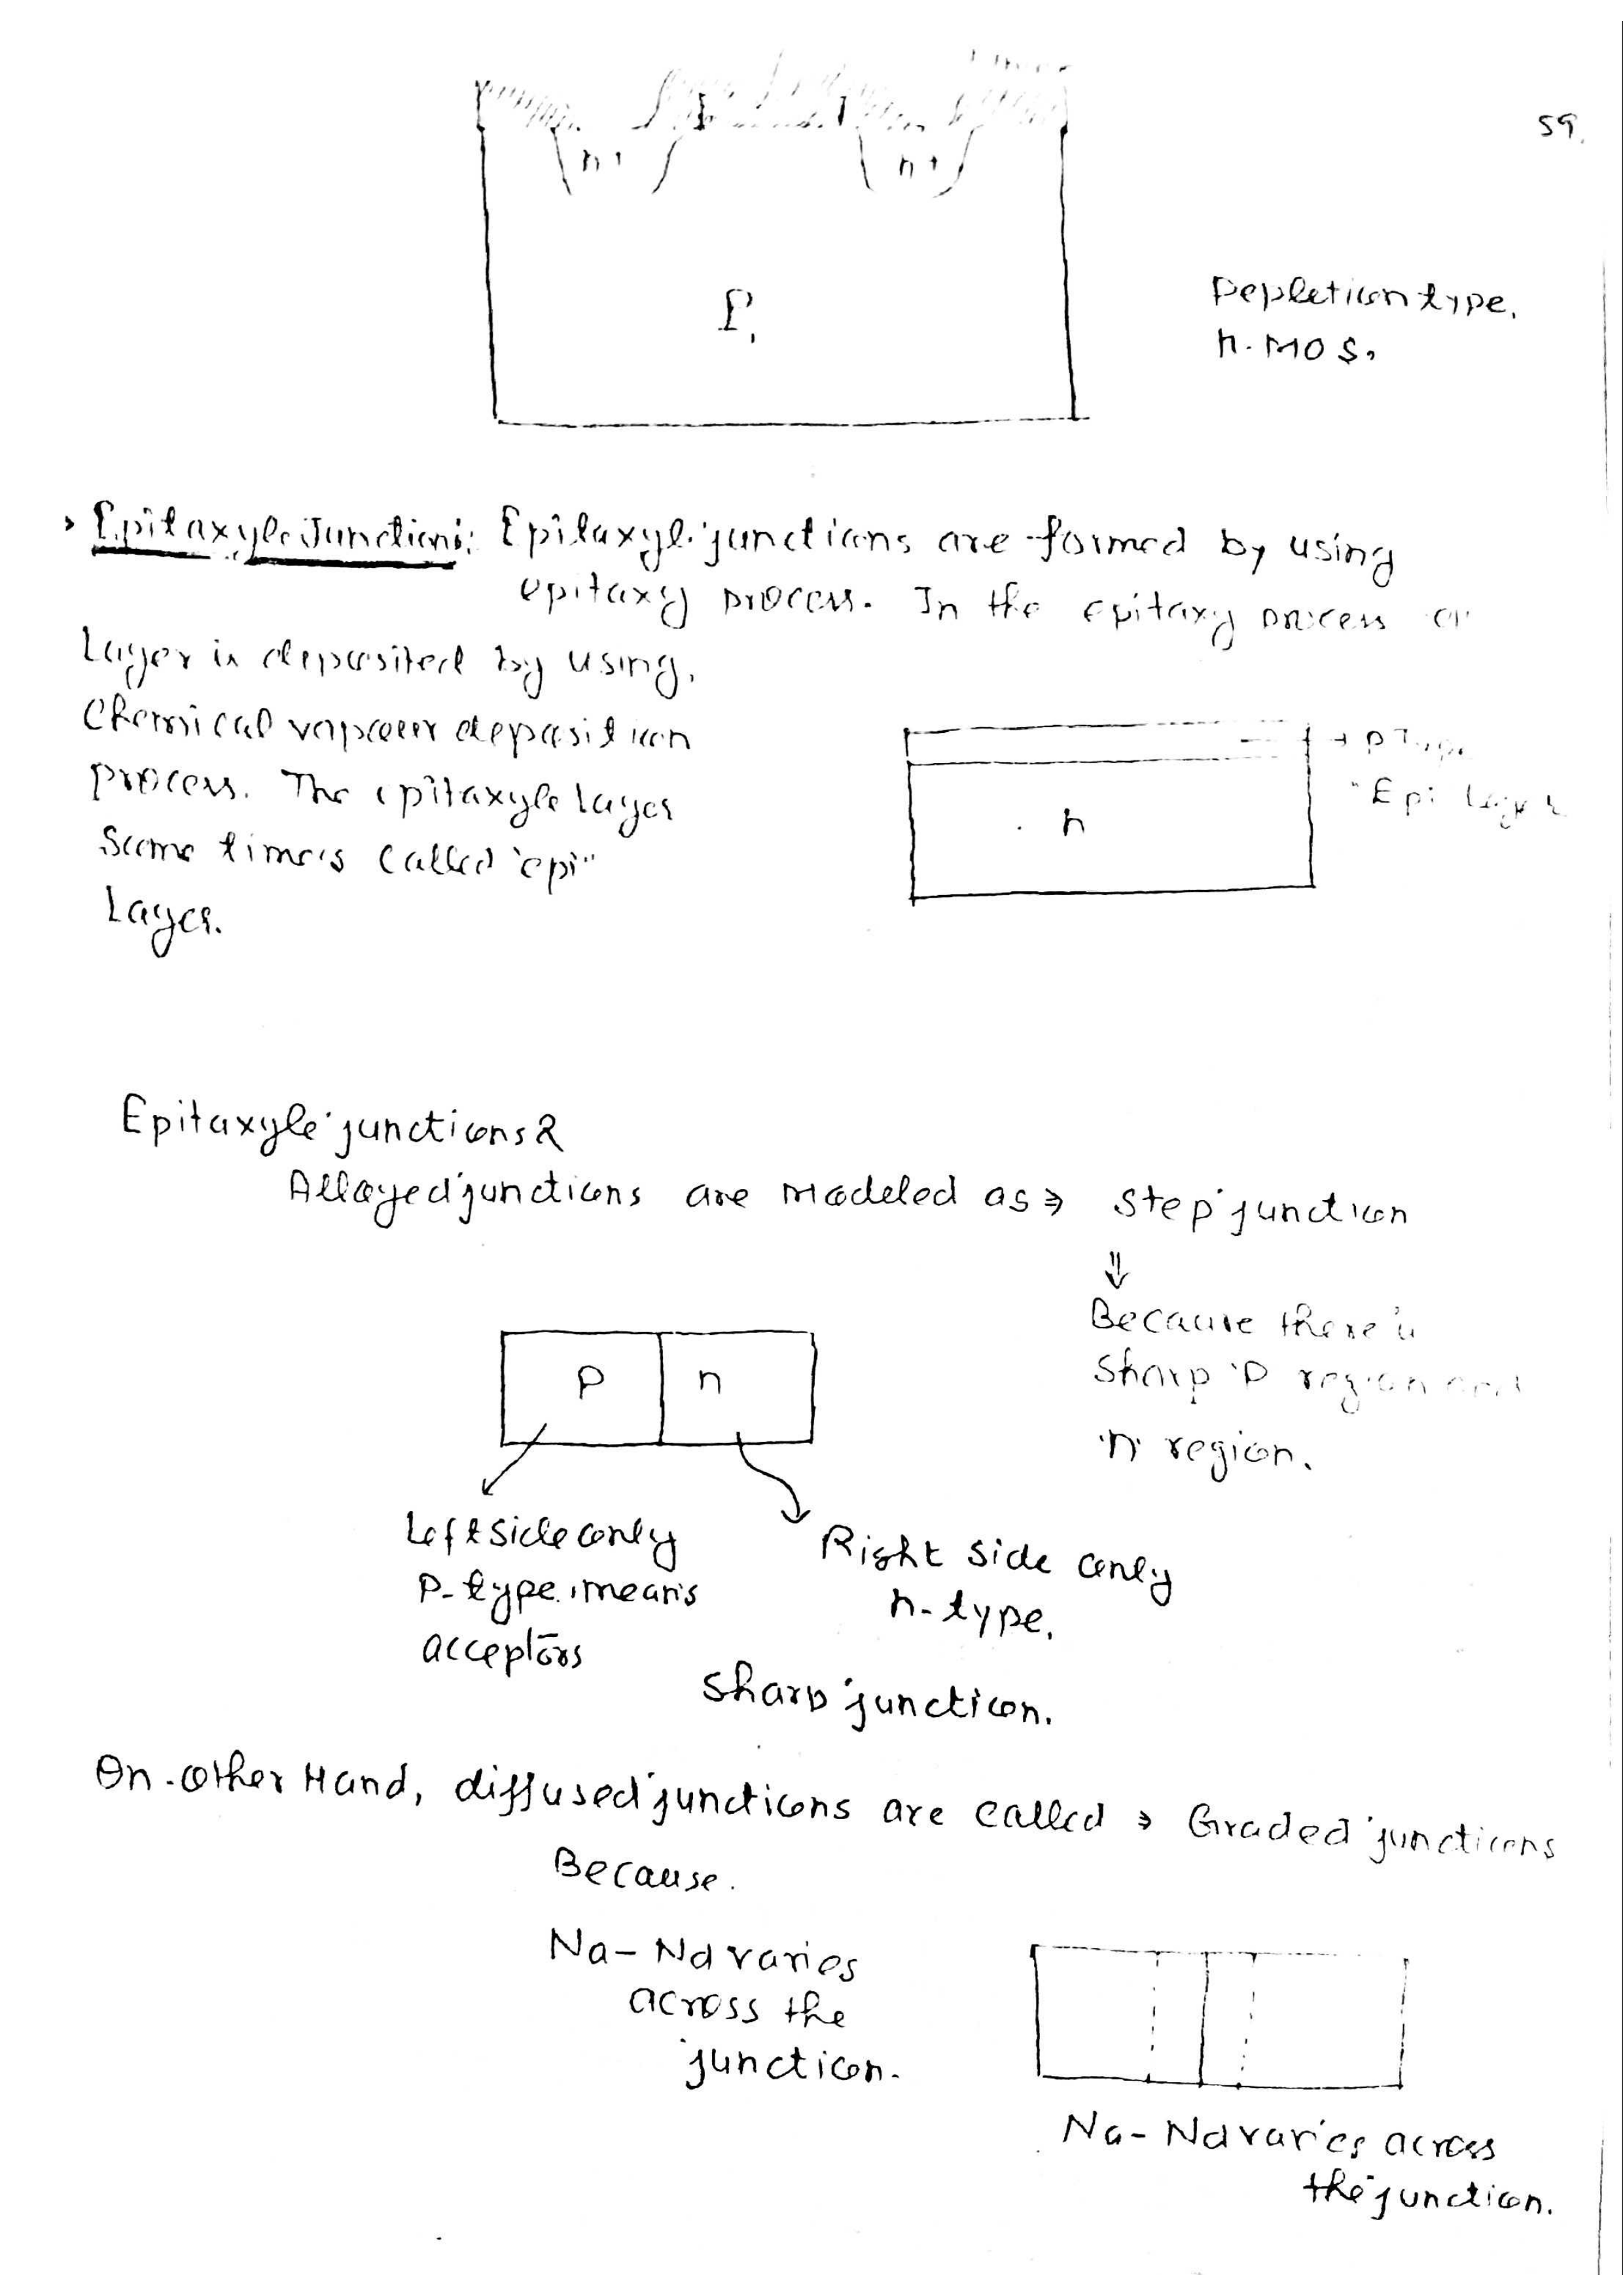 59.
n+
n+
P.
Depletion type.
n-MOS.
Epitaxyle Junctions: Epitaxyle junctions are formed by using
epitaxy process. In the epitaxy process a
Layer is deposited by using.
Chemical vapour deposition
process. The epitaxyle layer
Some times called "epi"
Layer.
→ p Type
Epi Layer
n
Epitaxyle junctions &
Alloyed junctions are modeled as ⇒ Step junction
⇓
Because there is
Sharp 'P region and
'n' region.
P n
Left side only
P-type. means
acceptors
Right side only
n-type.
Sharp junction.
On-other Hand, diffused junctions are called ⇒ Graded junctions
Because.
Na-Nd varies
across the
junction.
Na-Nd varies across
the junction.